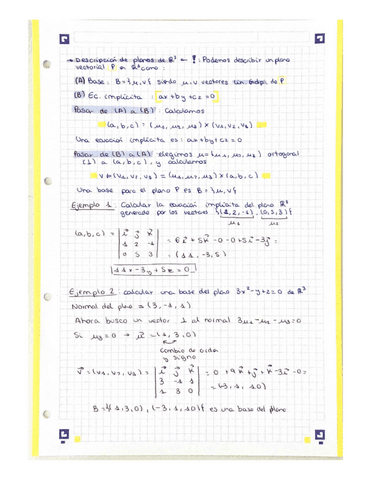 → Descripción de planos de ℝ³ ← ! : Podemos describir un plano
vectorial P en ℝ³ como:
(A) Base: B = {μ, v} siendo μ, v vectores lin. indep. de P
(B) Ec. implícita: ax + by + cz = 0
Pasar de (A) a (B): Calculamos
(a, b, c) = (μ₁, μ₂, μ₃) × (v₁, v₂, v₃)
Una ecuación implícita es: ax + by + cz = 0
Pasar de (B) a (A): elegimos μ = (μ₁, μ₂, μ₃) ortogonal
(⊥) a (a, b, c), y calculamos
v = (v₁, v₂, v₃) = (μ₁, μ₂, μ₃) × (a, b, c)
Una base para el plano P es B = {μ, v}
Ejemplo 1: Calcular la ecuación implícita del plano ℝ³
generado por los vectores {(1, 2, -1), (0, 5, 3)}
(a, b, c) = | i⃗ j⃗ k⃗ | = 6i⃗ + 5k⃗ - 0 - 0 + 5i⃗ - 3j⃗ =
1 2 -1
0 5 3 = (11, -3, 5)
11x - 3y + 5z = 0
Ejemplo 2: calcular una base del plano 3x - y + z = 0 de ℝ³
Normal del plano = (3, -1, 1)
Ahora busco un vector ⊥ al normal 3μ₁ - μ₂ - μ₃ = 0
Si μ₃ = 0 → μ⃗ = (1, 3, 0)
Cambio de orden
y signo
v⃗ = (v₁, v₂, v₃) = | i⃗ j⃗ k⃗ | = 0 + 9k⃗ + j⃗ + k⃗ - 3i⃗ - 0 =
3 -1 1
1 3 0 = (-3, 1, 10)
B = {(1, 3, 0), (-3, 1, 10)} es una base del plano